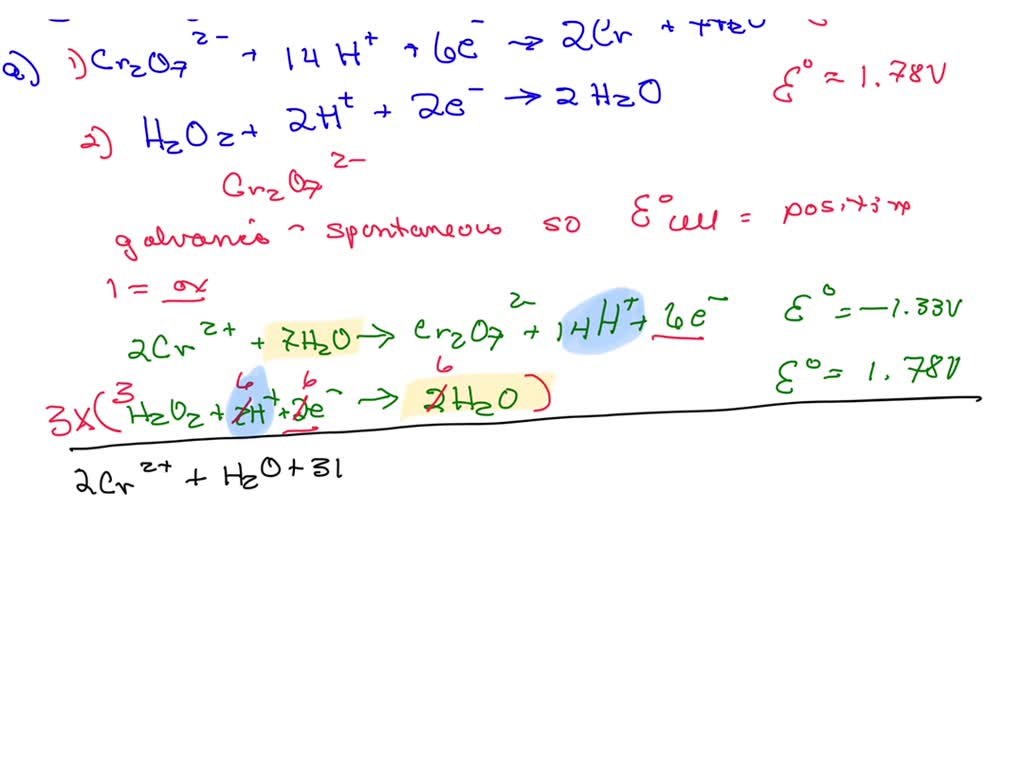 a) 1) Cr₂O₇²⁻ + 14 H⁺ + 6e⁻ → 2Cr +
ℰ° = 1.78V
2) H₂O₂ + 2H⁺ + 2e⁻ → 2 H₂O
Cr₂O₇²⁻
galvanic - spontaneous so ℰ°cell = positive
1 = ox
2Cr²⁺ + 7H₂O → Cr₂O₇²⁻ + 14H⁺ + 6e⁻ ℰ° = -1.33V
3x( 3 H₂O₂ + 6 2H⁺ + 6 2e⁻ → 6 2H₂O ) ℰ° = 1.78V
2Cr²⁺ + H₂O + 31